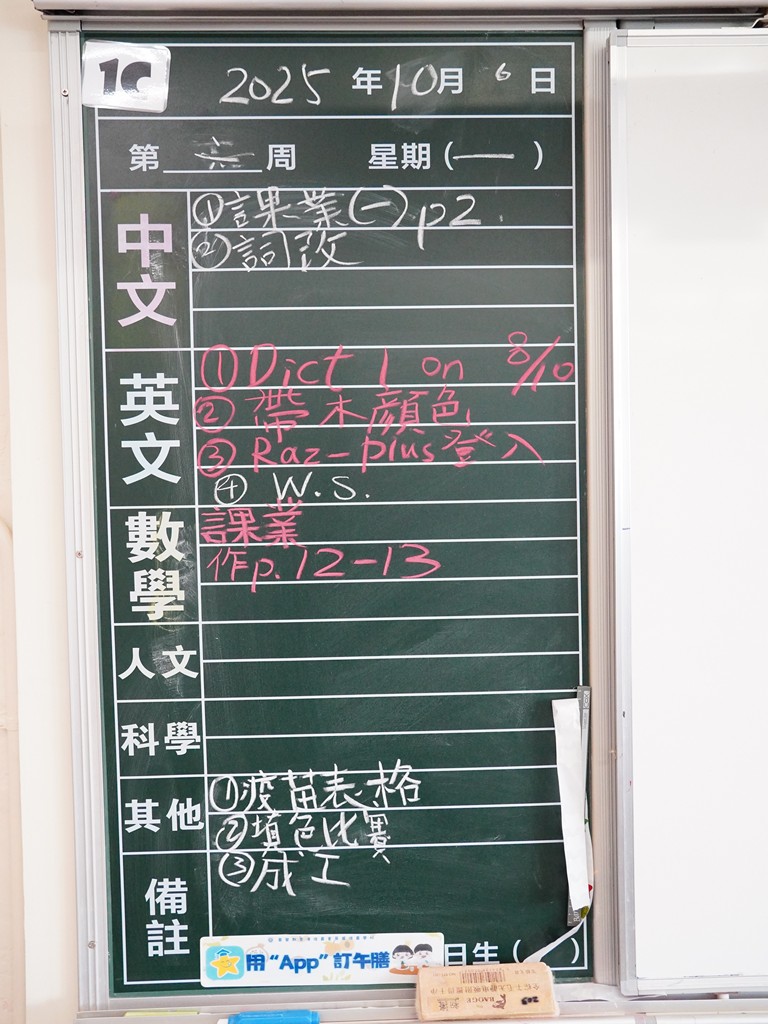 1C
2025年10月6日
第六周 星期(一)
中文
①課業(一)p2.
②詞改
英文
①Dict 1 on 8/10
②帶木顏色
③Raz-plus登入
④ W.S.
數學
課業
作p.12-13
人文
科學
其他
①疫苗表格
②填色比賽
③成工
備註
用“App”訂午膳
日生( )
BADGE